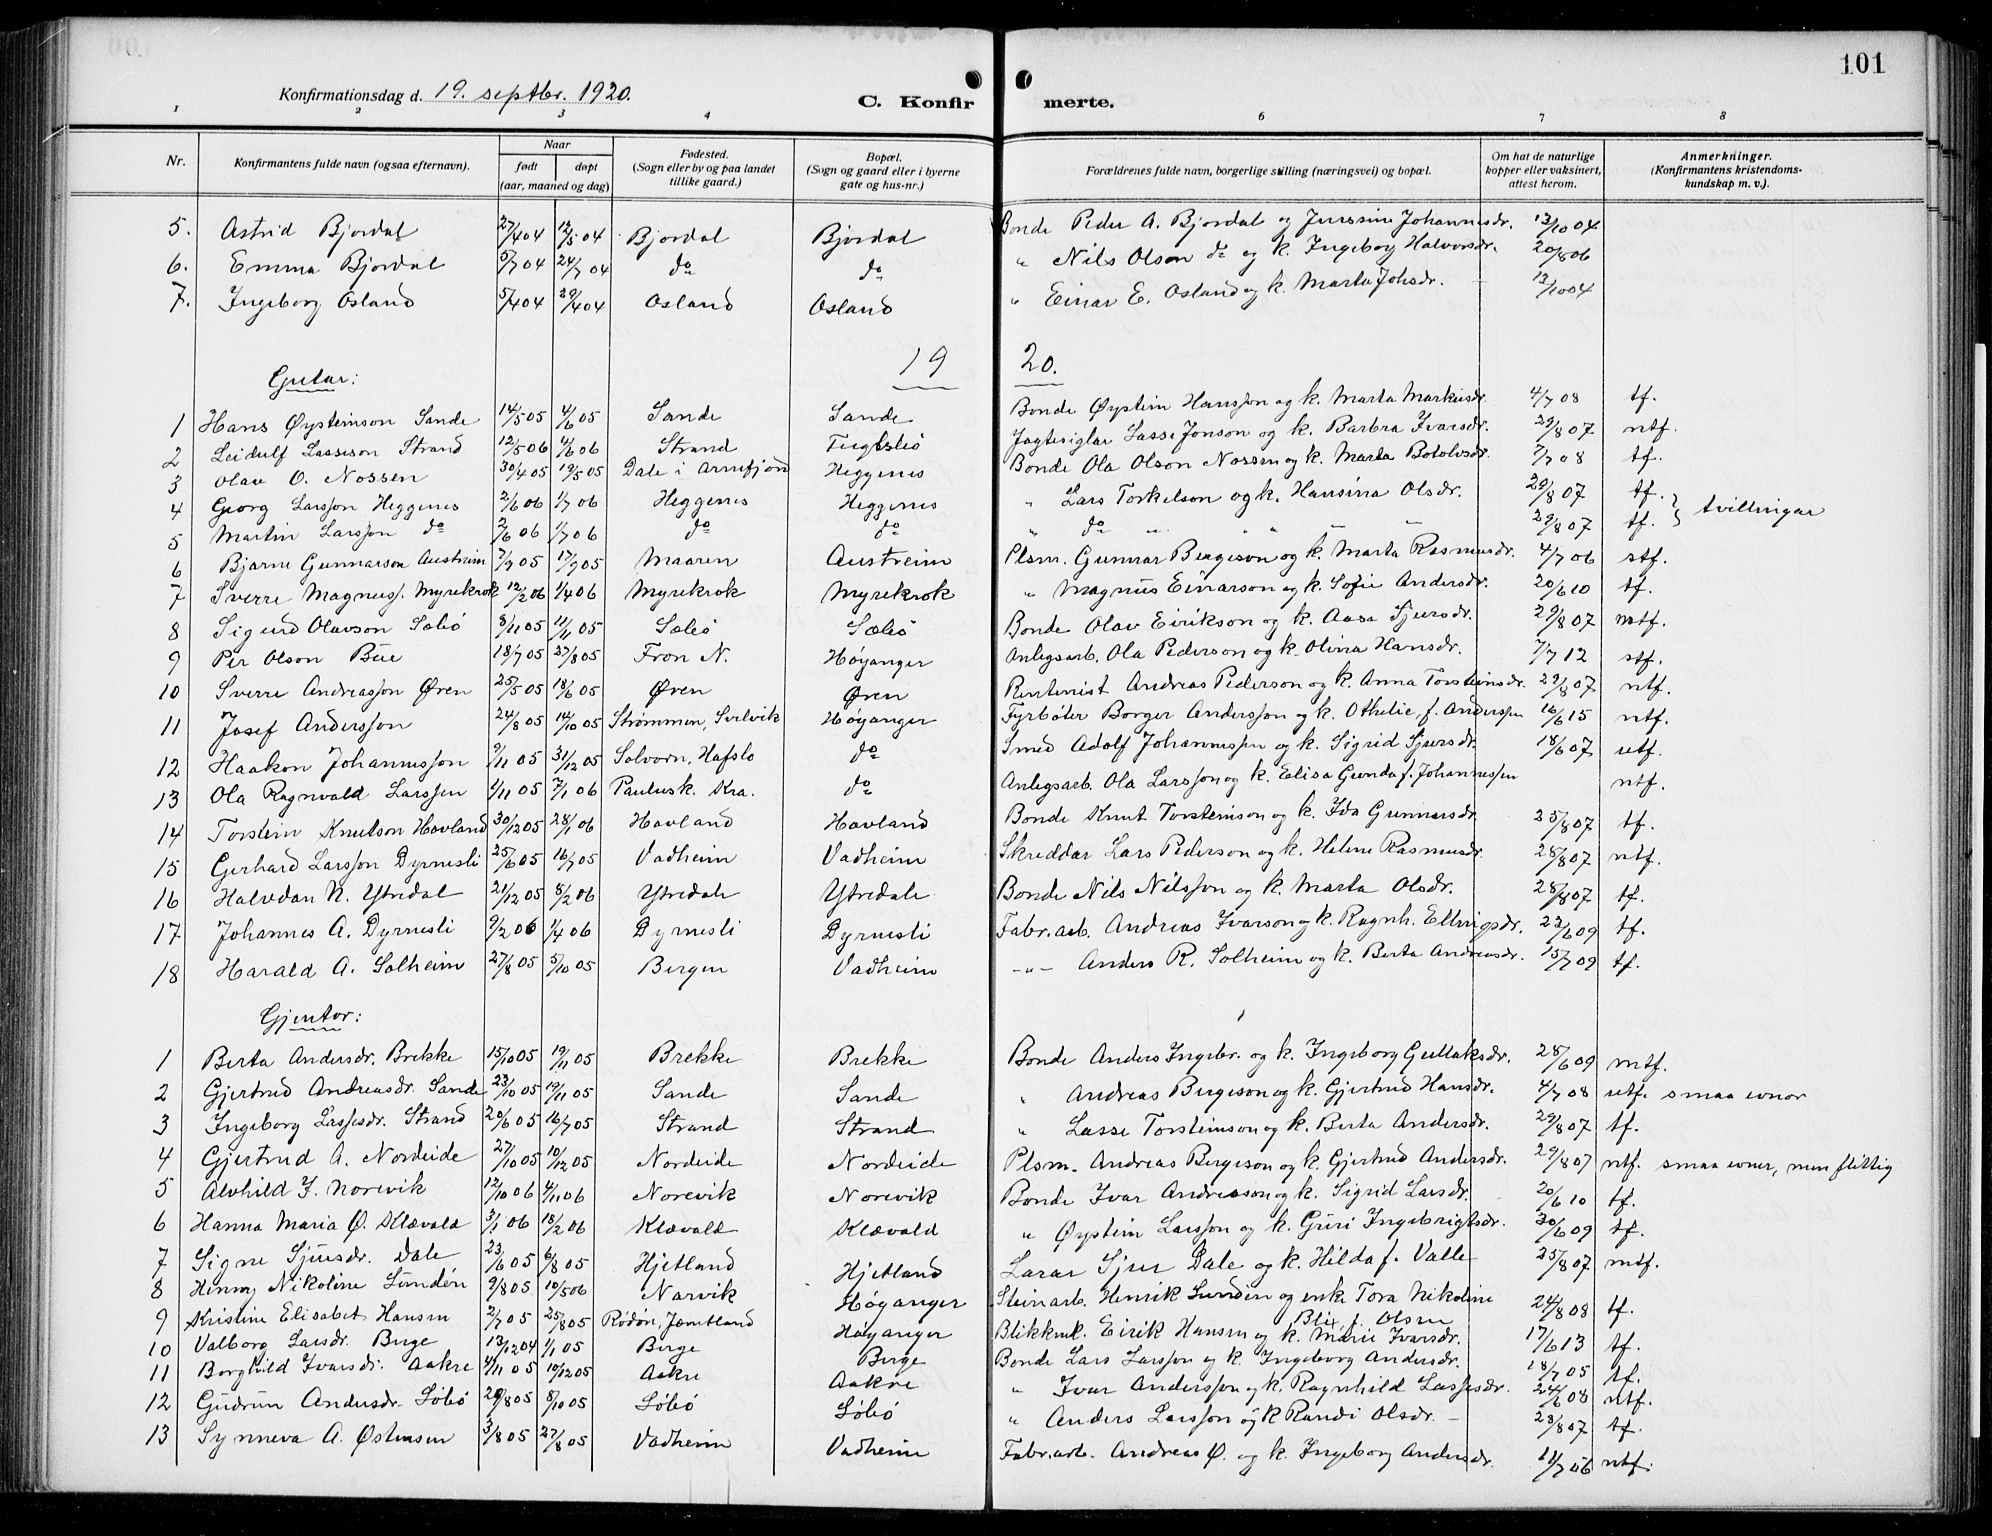 101
Konfirmationsdag d. 19. septbr. 1920.
C. Konfir merte.
1 2 3 4 6 7 8
Nr. Konfirmantens fulde navn (ogsaa efternavn). Naar født døpt (aar, maaned og dag) Fødested. (Sogn eller by og paa landet tillike gaard.) Bopæl. (Sogn og gaard eller i byerne gate og hus-nr.) Forældrenes fulde navn, borgerlige stilling (næringsvei) og bopæl. Om hat de naturlige kopper eller vaksinert, attest herom. Anmerkninger. (Konfirmantens kristendoms-kundskap m. v.).
5. Astrid Bjordal 27/4 04 12/5 04 Bjordal Bjordal Bonde Peder A. Bjordal og Johannesdr. 13/10 04
6. Emma Bjordal 5/7 04 24/7 04 do do " Nils Olson do og k. Ingeborg Halvorsdr. 20/8 06
7. Ingeborg Osland 5/4 04 29/4 04 Osland Osland " Einar E. Osland og k. Marta Johsdr. 13/10 04
19 20.
Gutar:
1 Hans Øysteinson Sande 14/5 05 4/6 05 Sande Sande Bonde Øystein Hansson og k. Marta Markusdr. 4/7 08 tf.
2 Leidulf Lasseson Strand 12/5 06 4/6 06 Strand Fuglsø Jagtesiglar Lasse Jonson og k. Barbra Ivarsdr. 29/8 07 ntf.
3 Olav O. Nossen 30/4 05 19/5 05 Dale i Arnefjord Heggenes Bonde Ola Olson Nossen og k. Marta Botolvsdr. 7/7 08 tf.
4 Georg Larsson Heggenes 2/6 06 1/7 06 Heggenes Heggenes " Lars Torkelson og k. Hansina Olsdr. 29/8 07 tf. } tvillingar
5 Martin Larsson do 2/6 06 1/7 06 do do " do " " " " 29/8 07 tf.
6 Bjarne Gunnarson Austreim 7/2 05 17/2 05 Maaren Austreim Plsm. Gunnar Bergeson og k. Marta Rasmusdr. 4/7 06 stf.
7 Sverre Magnuss. Myrekrok 12/2 06 1/4 06 Myrekrok Myrekrok " Magnus Einarson og k. Sofie Andersdr. 20/6 10 tf.
8 Sigurd Olavson Sæbø 8/11 05 11/11 05 Sæbø Sæbø Bonde Olav Eirikson og k. Aasa Sjursdr. 29/8 07 mtf.
9 Per Olson Bue 18/7 05 27/8 05 Fron N. Høyanger Anlegsarb. Ola Pederson og k. Olina Hansdr. 7/7 12 stf.
10 Sverre Andreasson Øren 25/5 05 18/6 05 Øren Øren Rentenist Andreas Pederson og k. Anna Torsteinsdr. 29/8 07 ntf.
11 Josef Andersson 24/8 05 14/10 05 Strømmen, Svelvik Høyanger Fyrbøter Borger Andersson og k. Othelie f. Anderssen 16/6 15 ntf.
12 Haakon Johannesson 9/11 05 31/12 05 Solvorn, Hafslo do Smed Adolf Johannessen og k. Sigrid Sjursdr. 18/6 07 utf.
13 Ola Ragnvald Larssen 1/11 05 7/1 06 Paulusk. Kra. do Anlegsarb. Ola Larsson og k. Elisa Gunda f. Johannessen ntf.
14 Torstein Knutson Hovland 30/12 05 28/1 06 Hovland Hovland Bonde Knut Torsteinson og k. Ida Gunnarsdr. 25/8 07 tf.
15 Gerhard Larsson Dyrnesli 25/6 05 16/7 05 Vadheim Vadheim Skreddar Lars Pederson og k. Helene Rasmusdr. 28/8 07 ntf.
16 Halvdan N. Ytredal 21/12 05 8/2 06 Ytredale Ytredale Bonde Nils Nilsson og k. Marta Olsdr. 28/8 07 tf.
17 Johannes A. Dyrnesli 9/2 06 1/4 06 Dyrnesli Dyrnesli Fabr.arb. Andreas Ivarson og k. Ragnh. Ellingsdr. 23/6 09 tf.
18 Harald A. Solheim 27/8 05 5/10 05 Bergen Vadheim -"- Anders R. Solheim og k. Berta Andreasdr. 15/7 09 tf.
Gjentor:
1 Berta Andersdr. Brekke 15/10 05 19/11 05 Brekke Brekke Bonde Anders Ingebr. og k. Ingeborg Gullaksdr. 28/6 09 mtf.
2 Gjertrud Andreasdr. Sande 23/10 05 19/11 05 Sande Sande " Andreas Bergeson og k. Gjertrud Hansdr. 4/7 08 utf. smaa evnor
3 Ingeborg Lassesdr. Strand 20/6 05 16/7 05 Strand Strand " Lasse Torsteinson og k. Berta Andersdr. 29/8 07 tf.
4 Gjertrud A. Nordeide 27/10 05 10/12 05 Nordeide Nordeide Plsm. Andreas Bergeson og k. Gjertrud Andersdr. 29/8 07 ntf. smaa evner, men flittig
5 Alvhild I. Norevik 12/10 06 4/11 06 Norevik Norevik Bonde Ivar Andreasson og k. Sigrid Larsdr. 20/6 10 tf.
6 Hanna Maria Ø. Klævald 3/1 06 18/2 06 Klævald Klævald " Øystein Larsson og k. Guri Ingebrigtsdr. 30/6 09 tf.
7 Signe Sjursdr. Dale 23/6 05 6/8 05 Hjetland Hjetland Lærar Sjur Dale og k. Hilda f. Valle 25/8 07 mtf.
8 Henny Nikoline Lunden 9/8 05 10/5 06 Narvik Høyanger Steinarb. Henrik Lunden og enke Tora Nikoline Blix f. Olsen 24/8 08 tf.
9 Kristine Elisabet Hansen 2/7 05 25/8 05 Rødøn, Jæmtland Høyanger Blikkensl. Eirik Hansen og k. Marie Ivarsdr. 17/6 13 tf.
10 Valborg Larsdr. Berge 13/12 04 1/1 05 Berge Berge Bonde Lars Larsson og k. Ingeborg Andersdr. 18/7 05 tf.
11 Borghild Ivarsdr. Aakre 4/11 05 10/12 05 Aakre Aakre " Ivar Andersson og k. Ragnhild Lassesdr. 24/6 08 ntf.
12 Gudrun Andersdr. Søbø 29/8 05 8/10 05 Søbø Søbø " Anders Larsson og k Randi Olsdr. 28/8 07 tf.
13 Synneva A. Østensen 3/8 05 27/8 05 Vadheim Vadheim Fabr.arb. Andreas Ø. og k. Ingeborg Andersdr. 11/7 06 ntf.